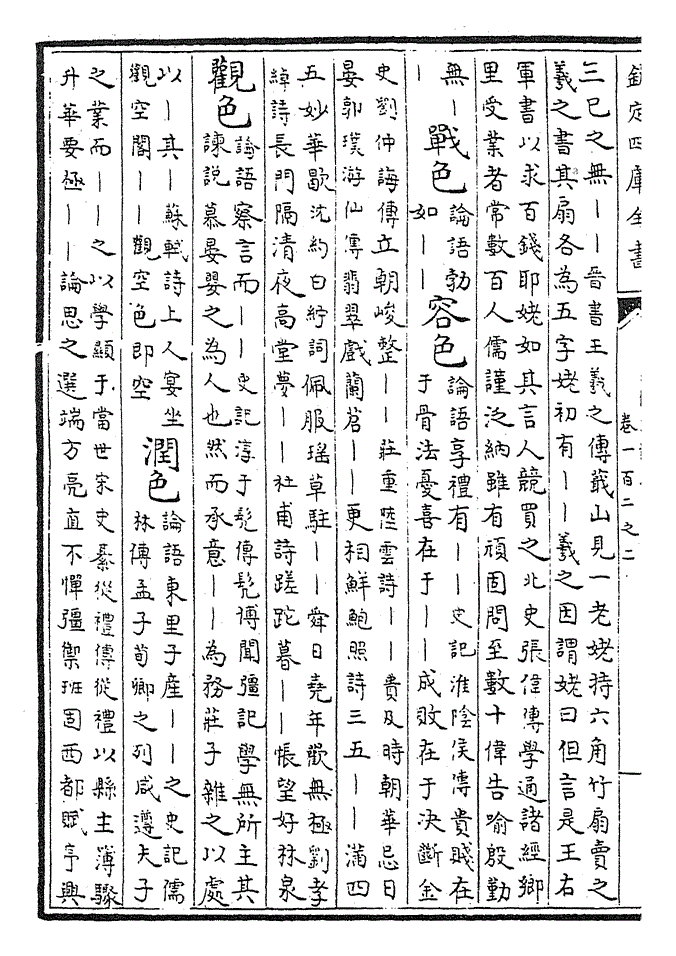 欽定四庫全書
卷一百二之二
三已之無｜｜晉書王羲之傳蕺山見一老姥持六角竹扇賣之
羲之書其扇各為五字姥初有｜｜羲之因謂姥曰但言是王右
軍書以求百錢耶姥如其言人競買之北史張偉傳學通諸經鄉
里受業者常數百人儒謹泛納雖有頑固問至數十偉告喻殷勤
無｜
｜
戰色
論語勃
如｜｜
容色
論語享禮有｜｜史記淮陰侯傳貴賤在
于骨法憂喜在于｜｜成敗在于決斷金
史劉仲誨傳立朝峻整｜｜莊重陸雲詩｜｜貴及時朝華忌日
晏郭璞游仙傳翡翠戲蘭苕｜｜更相鮮鮑照詩三五｜｜滿四
五妙華歇沈約白紵詞佩服瑤草駐｜｜舜日堯年歡無極劉孝
綽詩長門隔清夜高堂夢｜｜杜甫詩蹉跎暮｜｜悵望好林泉
觀色
論語察言而｜｜史記淳于髠傳髠博聞彊記學無所主其
諫說慕晏嬰之為人也然而承意｜｜為務莊子雜之以處
以｜其｜蘇軾詩上人宴坐
觀空閣｜｜觀空色即空
潤色
論語東里子產｜｜之史記儒
林傳孟子荀卿之列咸遵夫子
之業而｜｜之以學顯于當世宋史綦從禮傳從禮以縣主簿驟
升華要極｜｜論思之選端方亮直不憚彊禦班固西都賦亭興